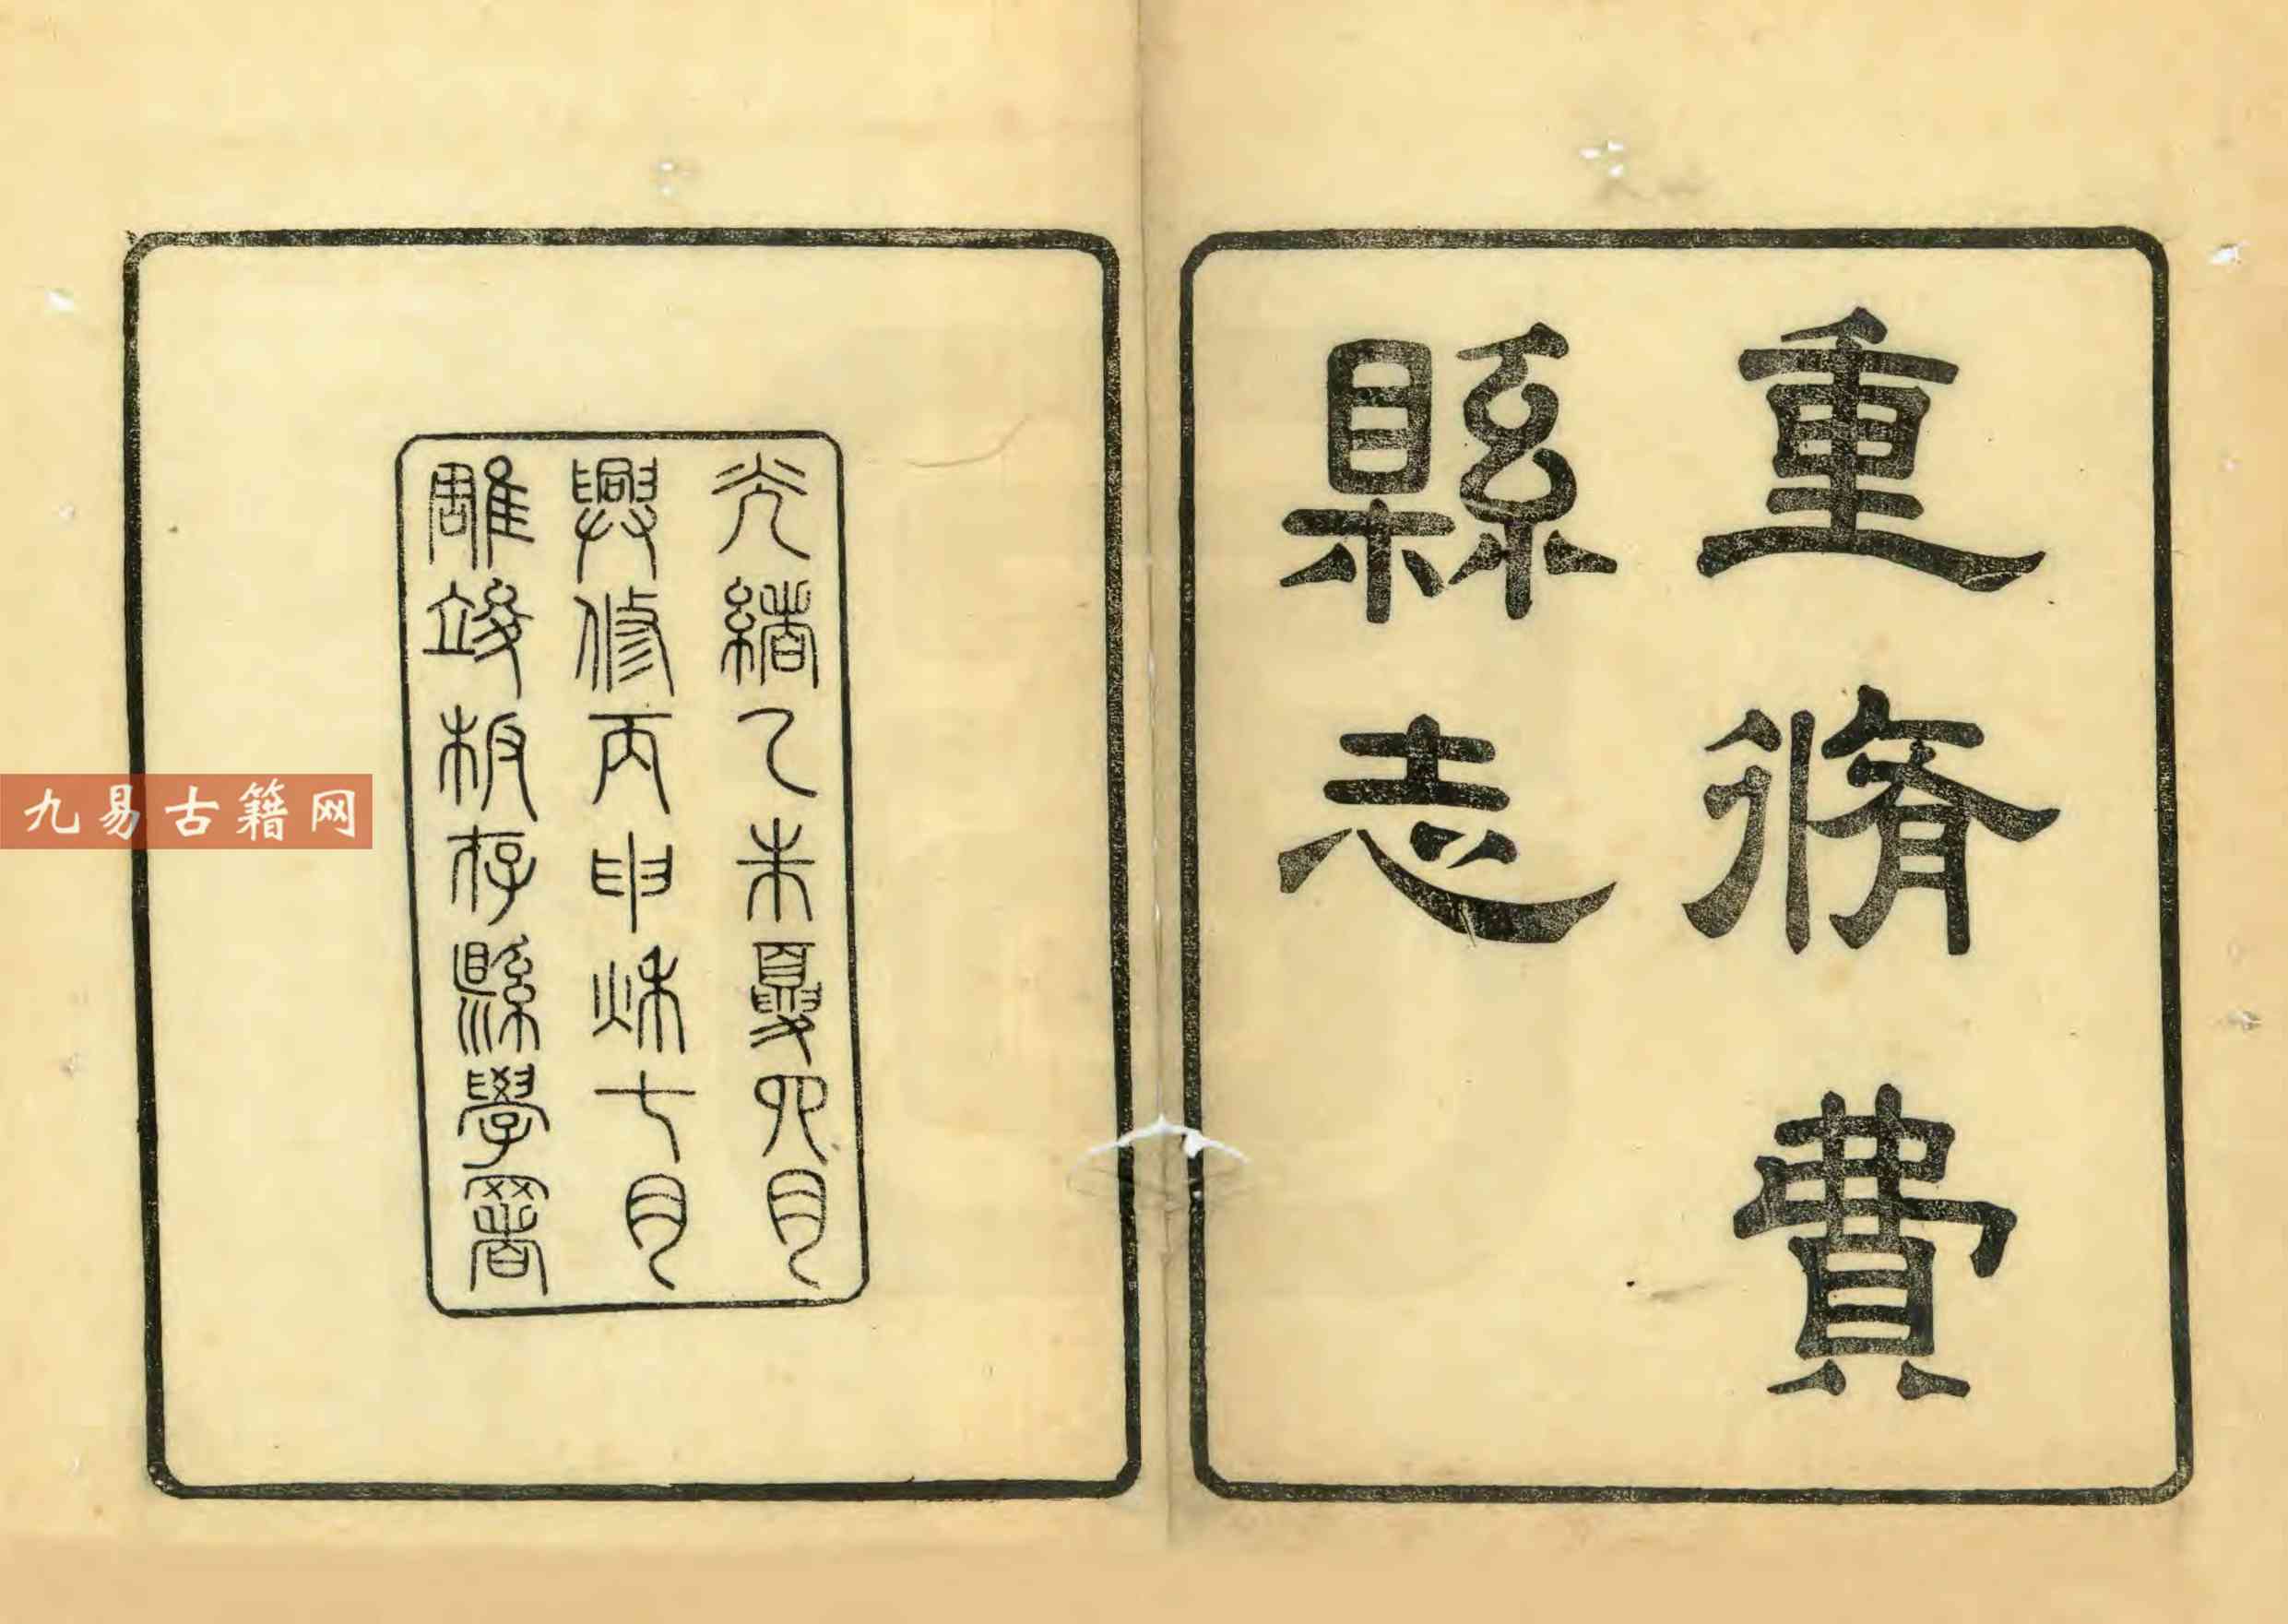 重脩費
縣志
光緒乙未夏四月
興修丙申秌七月
雕竣板存縣學署
九易古籍网